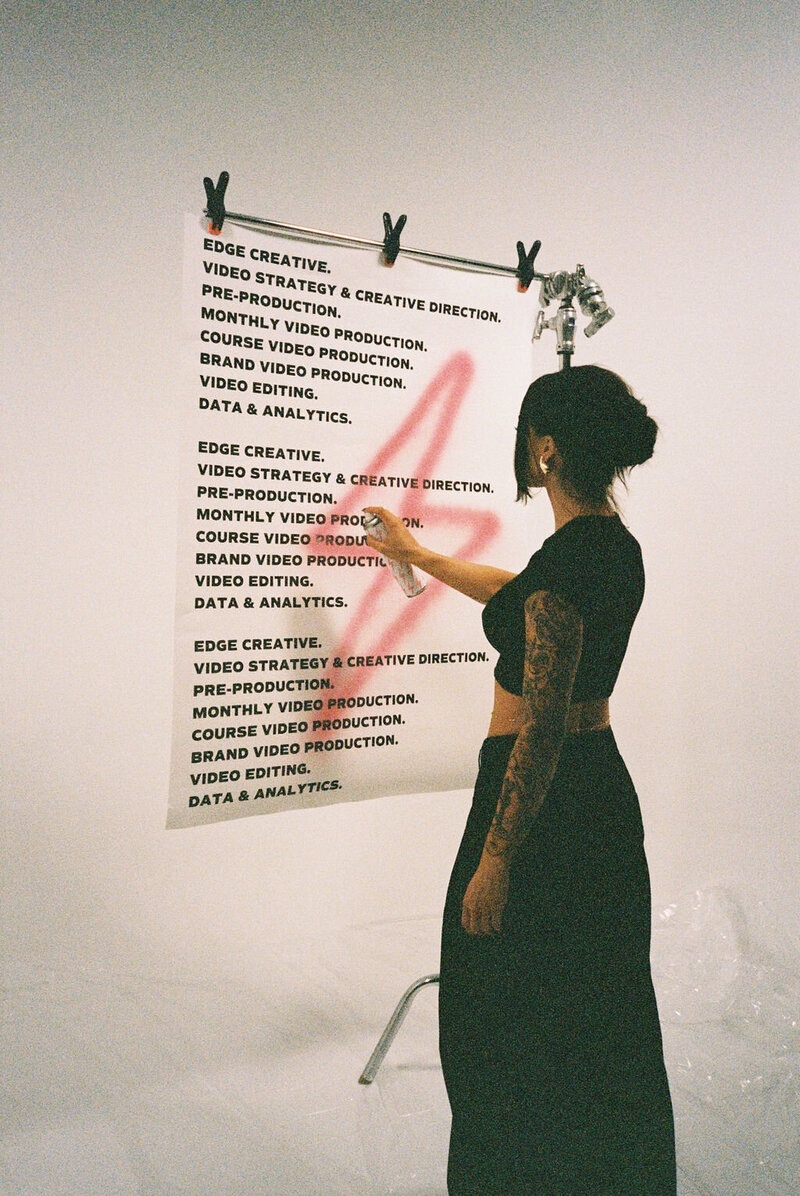 EDGE CREATIVE.
VIDEO STRATEGY & CREATIVE DIRECTION.
PRE-PRODUCTION.
MONTHLY VIDEO PRODUCTION.
COURSE VIDEO PRODUCTION.
BRAND VIDEO PRODUCTION.
VIDEO EDITING.
DATA & ANALYTICS.
EDGE CREATIVE.
VIDEO STRATEGY & CREATIVE DIRECTION.
PRE-PRODUCTION.
MONTHLY VIDEO PRODUCTION.
COURSE VIDEO PRODU
BRAND VIDEO PRODUCTIO
VIDEO EDITING.
DATA & ANALYTICS.
EDGE CREATIVE.
VIDEO STRATEGY & CREATIVE DIRECTION.
PRE-PRODUCTION.
MONTHLY VIDEO PRODUCTION.
COURSE VIDEO PRODUCTION.
BRAND VIDEO PRODUCTION.
VIDEO EDITING.
DATA & ANALYTICS.